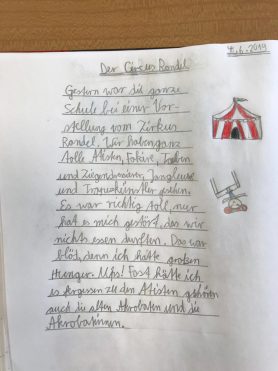 4.6.2019
Der Circus Rondel
Gestern war die ganze
Schule bei einer Vor-
stellung vom Zirkus
Rondel. Wir haben ganz
tolle Atisten, Fakire, Tauben
und Ziegendomteure, Jongleure
und Trapezkünstler gesehen.
Es war richtig toll, nur
hat es mich gestört, das wir
nichts essen durften. Das war
blöd, denn ich hatte großen
Hunger. Ups! Fast hätte ich
es fergessen zu den Atisten gehören
auch die Akrobaten und die
Akrobatinnen.